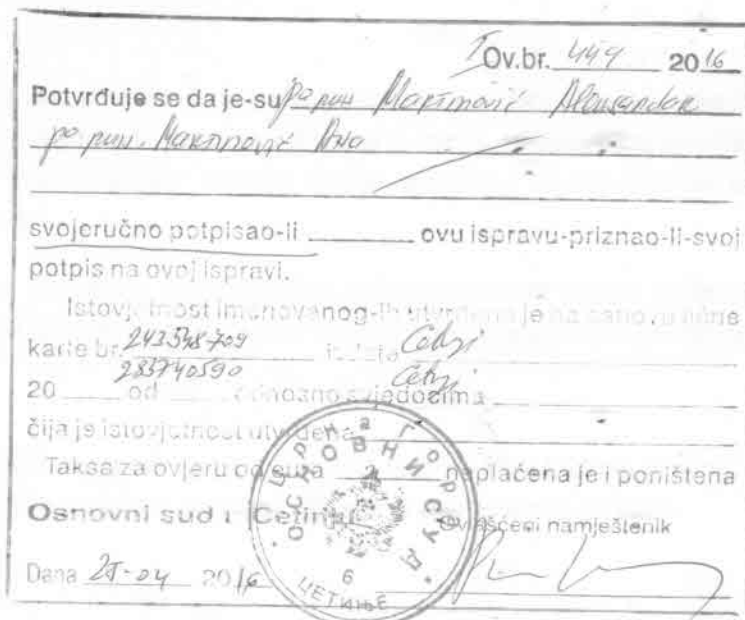 I Ov.br. 449 2016
Potvrđuje se da je-su po pun Martinović Aleksandar
po pun. Martinović Ana
svojeručno potpisao-li ovu ispravu-priznao-li-svoj
potpis na ovoj ispravi.
Istovjetnost imenovanog-ih utvrđena je na osnovu lične
karte br. 243548709 izdate Cetinje
283740590 Cetinje
20 od odnosno svjedocima
čija je istovjetnost utvrđena
Taksa za ovjeru od eura 2 naplaćena je i poništena
Osnovni sud Cetinje Ovlašćeni namještenik
Dana 25-04 2016
Црна Гора
ОСНОВНИ СУД
6
ЦЕТИЊЕ